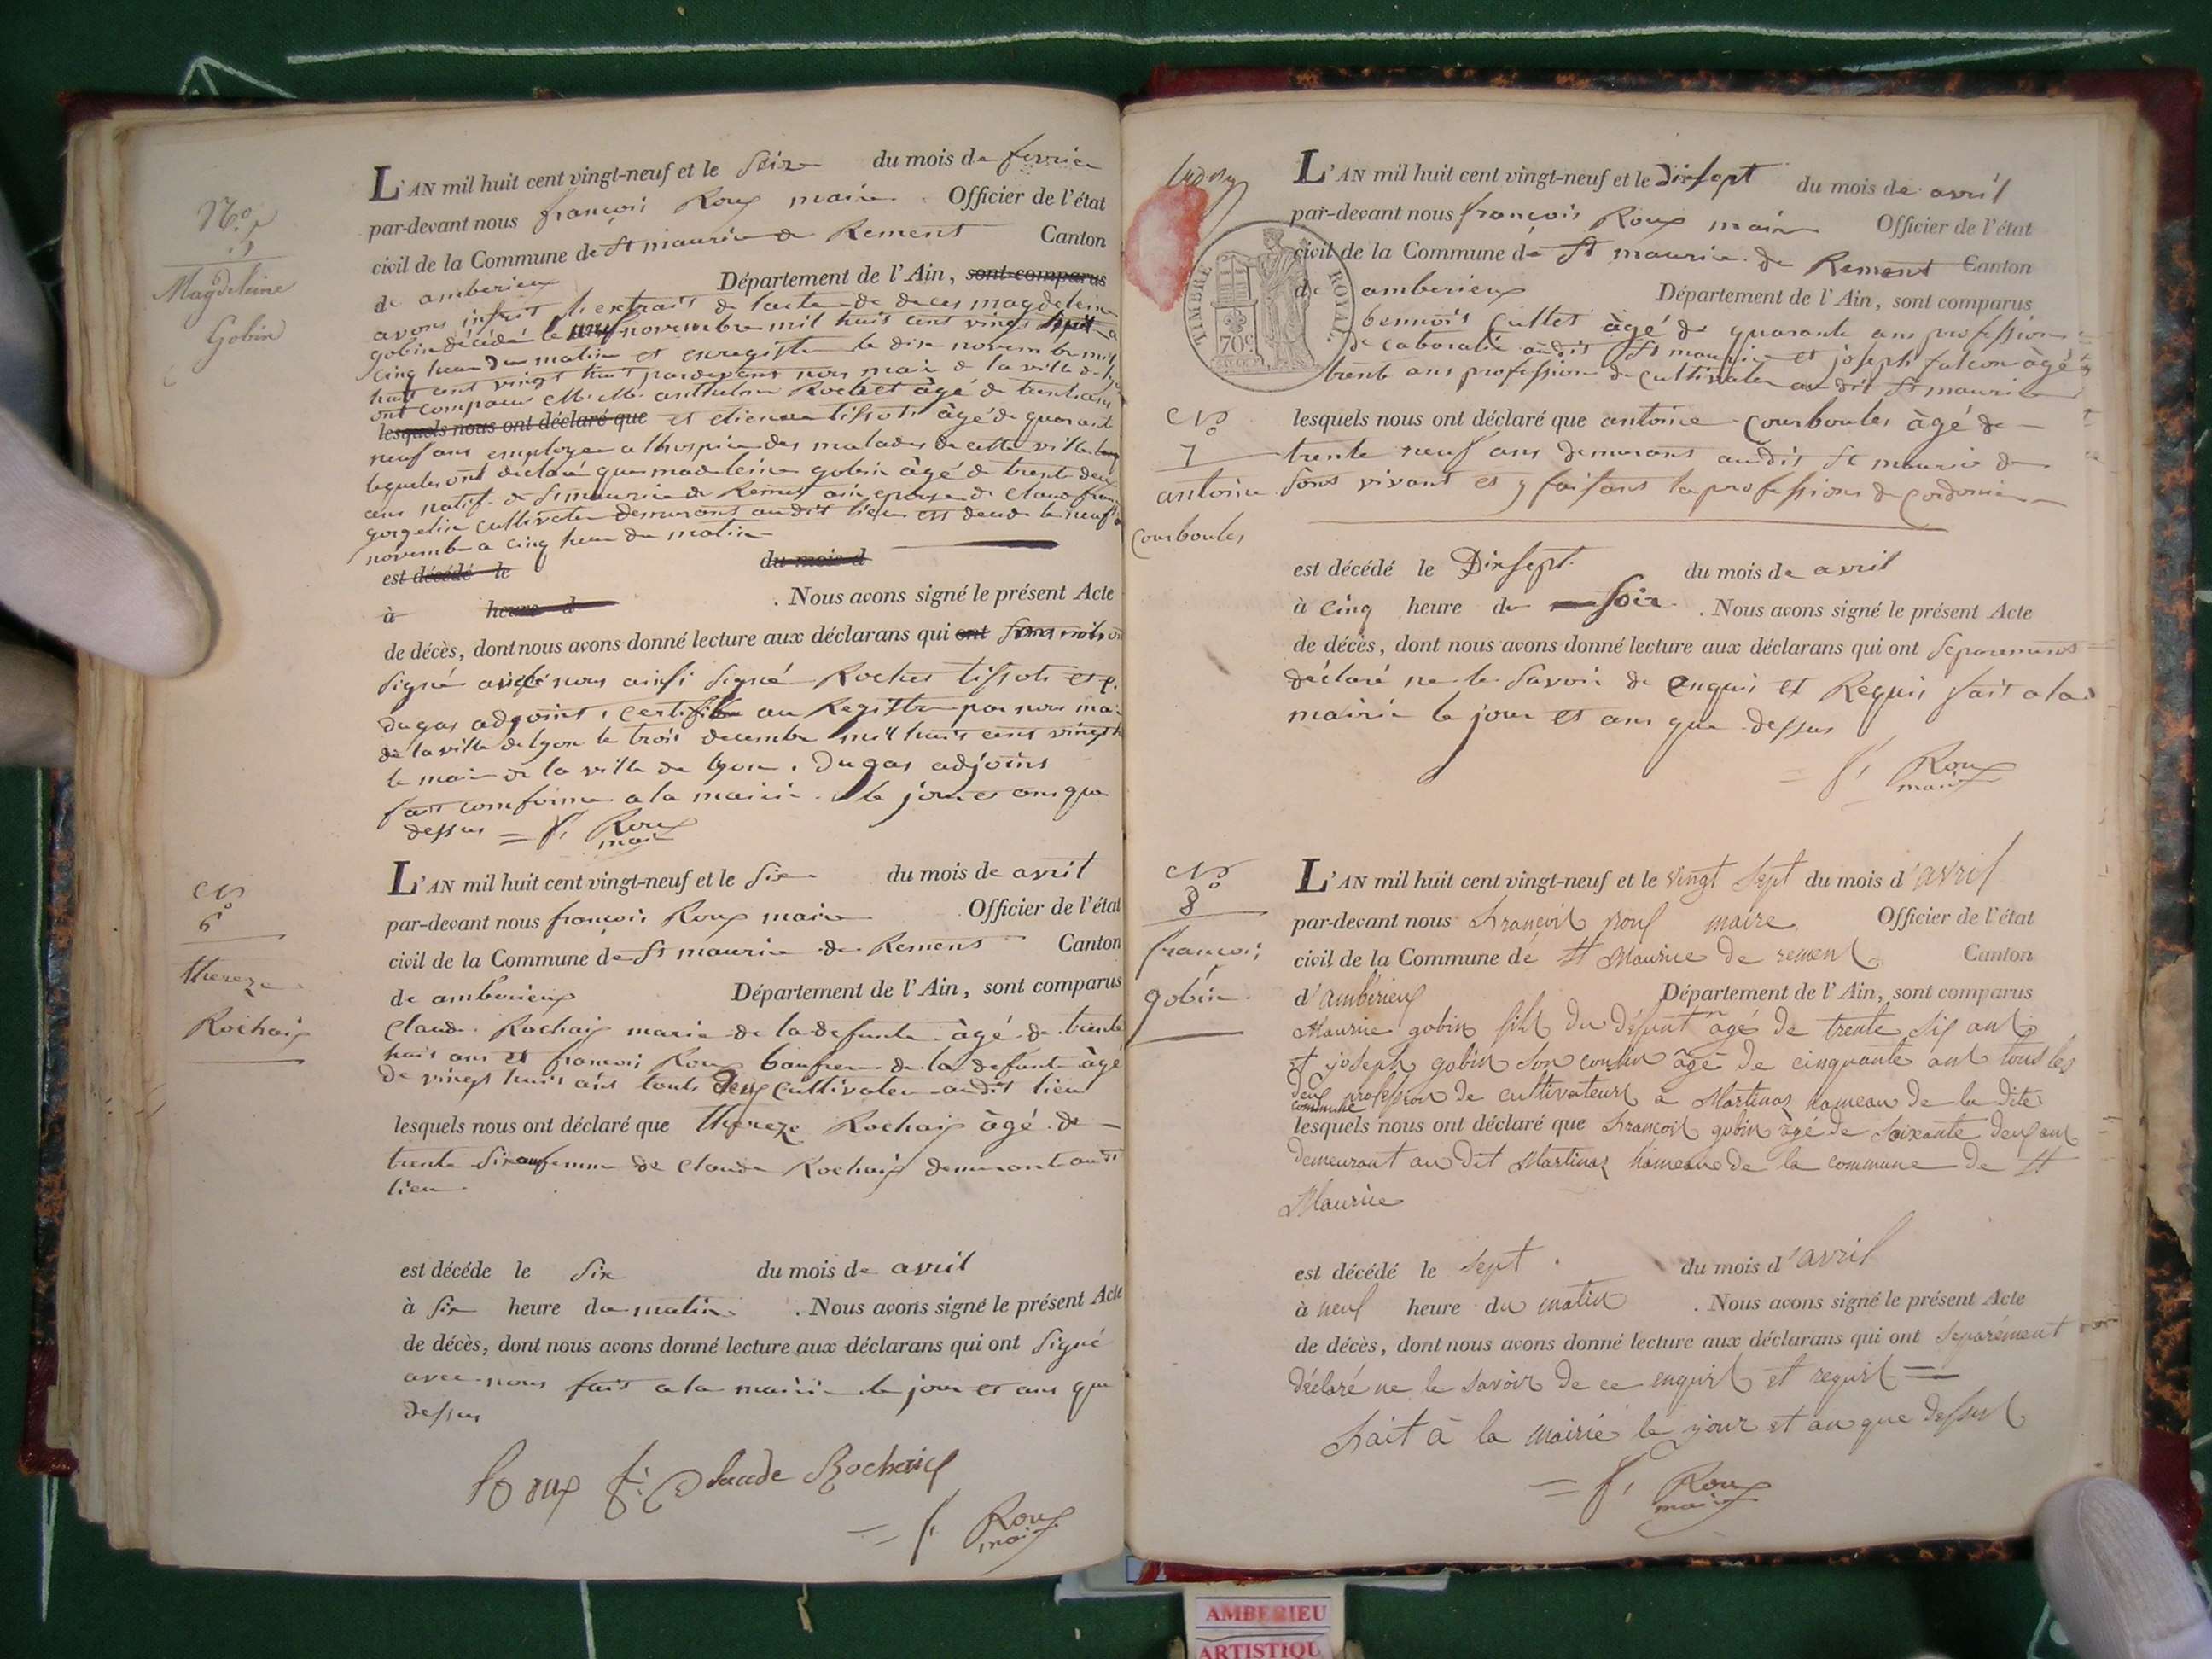 N.o 5
Magdeleine
Gobin
L'AN mil huit cent vingt-neuf et le seize du mois de fevrier
par-devant nous françois Roux maire Officier de l'état
civil de la Commune de St maurice de Rement Canton
de amberieux Département de l'Ain, sont comparus
avons inscrit l'extrait de l'acte de deces magdeleine
gobin décédé le neuf novembre mil huit cent vingt huit a
cinq heure du matin et enregistre le dix novembre mil
huit cent vingt huit pardevant nous maire de la ville de
ont comparu M.M. anthelme Rochet âgé de trente ans
lesquels nous ont déclaré que et etienne tissot âgé de quarante
neuf ans employer a l'hospice des malades de cette ville
lequels ont declaré que madeleine gobin âgé de trente deux
ans natif de St maurice de Remens ain epouse de Claude
cultivateur demeurant audit lieu est decede le neuf
novembre a cinq heure du matin
est décédé le du mois d
à heure d . Nous avons signé le présent Acte
de décès, dont nous avons donné lecture aux déclarans qui ont
signé avec nous ainsi signé Rochet tissot et
dugas adjoint, certifie au Registre par nous maire
de la ville de lyon le trois decembre mil huit cent vingt
le maire de la ville de lyon. Dugas adjoint
fait conforme a la mairie le jour et ans que
dessus = f. Roux
maire
N.o
6
thereze
Rochaix
L'AN mil huit cent vingt-neuf et le six du mois de avril
par-devant nous françois Roux maire Officier de l'état
civil de la Commune de St maurice de Remens Canton
de amberieux Département de l'Ain, sont comparus
Claude Rochaix marie de la defunte âgé de trente
huit ans et françois Roux baufrere de la defunte âgé
de vingt huit ans touts deux cultivateur audit lieu
lesquels nous ont déclaré que thereze Rochaix âgé de
trente six ans femme de Claude Rochaix demeurant audit
lieu
est décédé le six du mois de avril
à six heure du matin . Nous avons signé le présent Acte
de décès, dont nous avons donné lecture aux déclarans qui ont signé
avec nous fait a la mairie le jour et ans que
dessus
Roux f. Claude Rochaix
= f. Roux
maire
TIMBRE ROYAL
70c
L'AN mil huit cent vingt-neuf et le dixsept du mois de avril
par-devant nous françois Roux maire Officier de l'état
civil de la Commune de St maurice de Rement Canton
de amberieux Département de l'Ain, sont comparus
bennoit Cullet âgé de quarante ans profession
de cabaratié audit St maurice et joseph falcon âgé
trente ans profession de cultivateur audit St maurice
N.o
7
antoine
Courboules
lesquels nous ont déclaré que antoine Courboules âgé de
trente neuf ans demeurant audit St maurice de
sons vivant et y faisant la profession de cordonier
est décédé le Dixsept du mois de avril
à cinq heure du soir . Nous avons signé le présent Acte
de décès, dont nous avons donné lecture aux déclarans qui ont separement
déclaré ne le savoir de enquis et Requis fait a la
mairie le jour et ans que dessus
= f. Roux
maire
N.o
8
francois
gobin
L'AN mil huit cent vingt-neuf et le vingt sept du mois d'avril
par-devant nous françois roux maire Officier de l'état
civil de la Commune de St Maurice de rement Canton
d'ambérieux Département de l'Ain, sont comparus
Maurice gobin fils du défunt âgé de trente six ans
et joseph gobin son cousin âgé de cinquante ans tous les
deux profession de cultivateurs a Martinaz hameau de la dite
commune
lesquels nous ont déclaré que francois gobin âgé de soixante deux ans
demeurant au dit Martinaz hameau de la commune de St
Maurice
est décédé le sept du mois d'avril
à neuf heure du matin . Nous avons signé le présent Acte
de décès, dont nous avons donné lecture aux déclarans qui ont séparément
déclaré ne le savoir de ce enquis et requis =
fait à la mairie le jour et an que dessus
= f. Roux
maire
AMBERIEU
ARTISTIQU